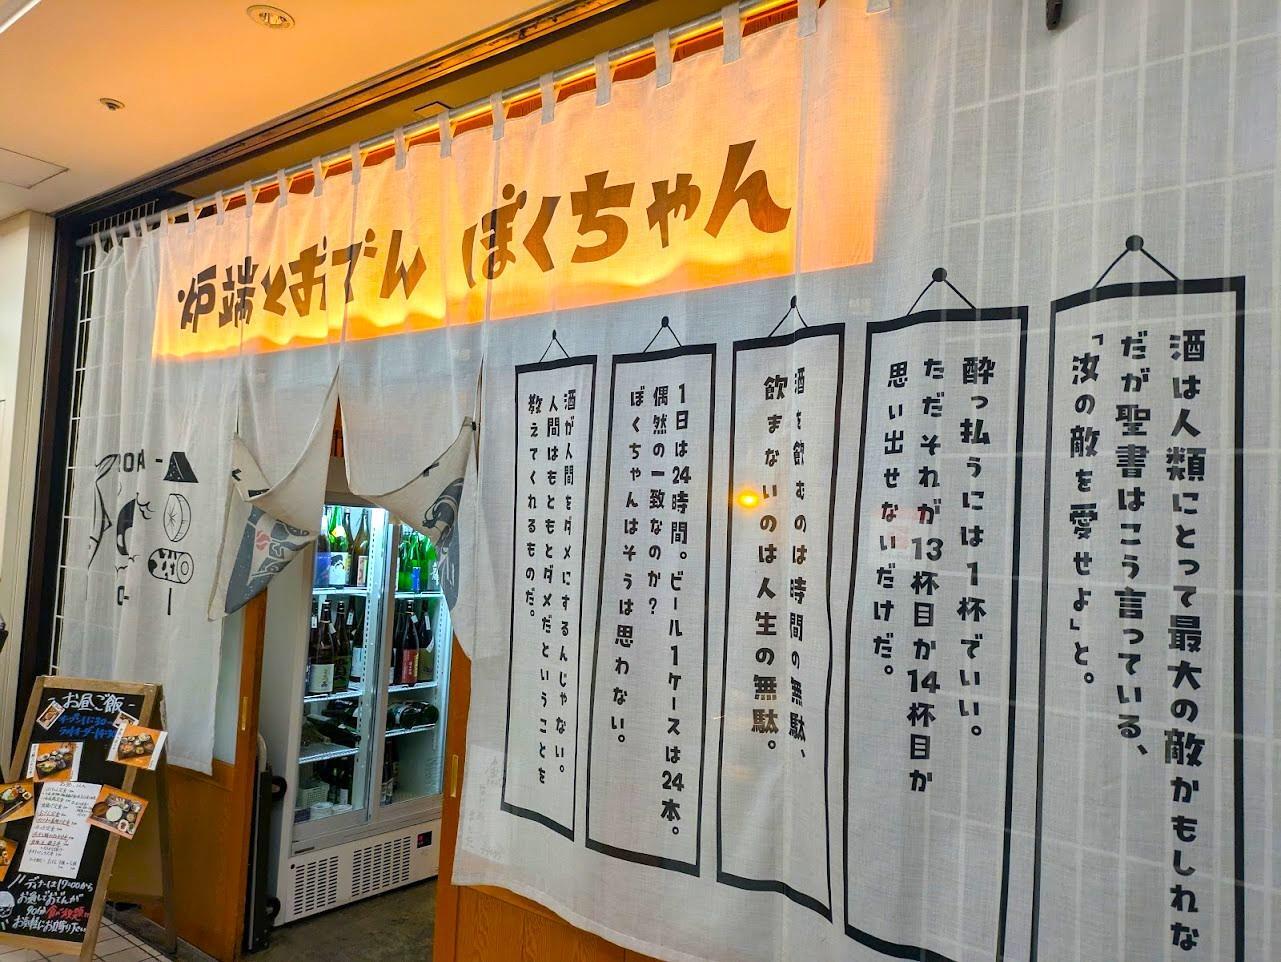 炉端とおでん ぼくちゃん
酒は人類にとって最大の敵かもしれな
だが聖書はこう言っている、
「汝の敵を愛せよ」と。
酔っ払うには1杯でいい。
ただそれが13杯目か14杯目か
思い出せないだけだ。
酒を飲むのは時間の無駄、
飲まないのは人生の無駄。
1日は24時間。ビール1ケースは24本。
偶然の一致なのか?
ぼくちゃんはそうは思わない。
酒が人間をダメにするんじゃない。
人間はもともとダメだということを
教えてくれるものだ。
お昼ご飯
オープン11:30~
ラストオーダー14:30
ディナーは17:00から
お通しておでんが
90分食べ放題
お気軽にお立寄り下さい